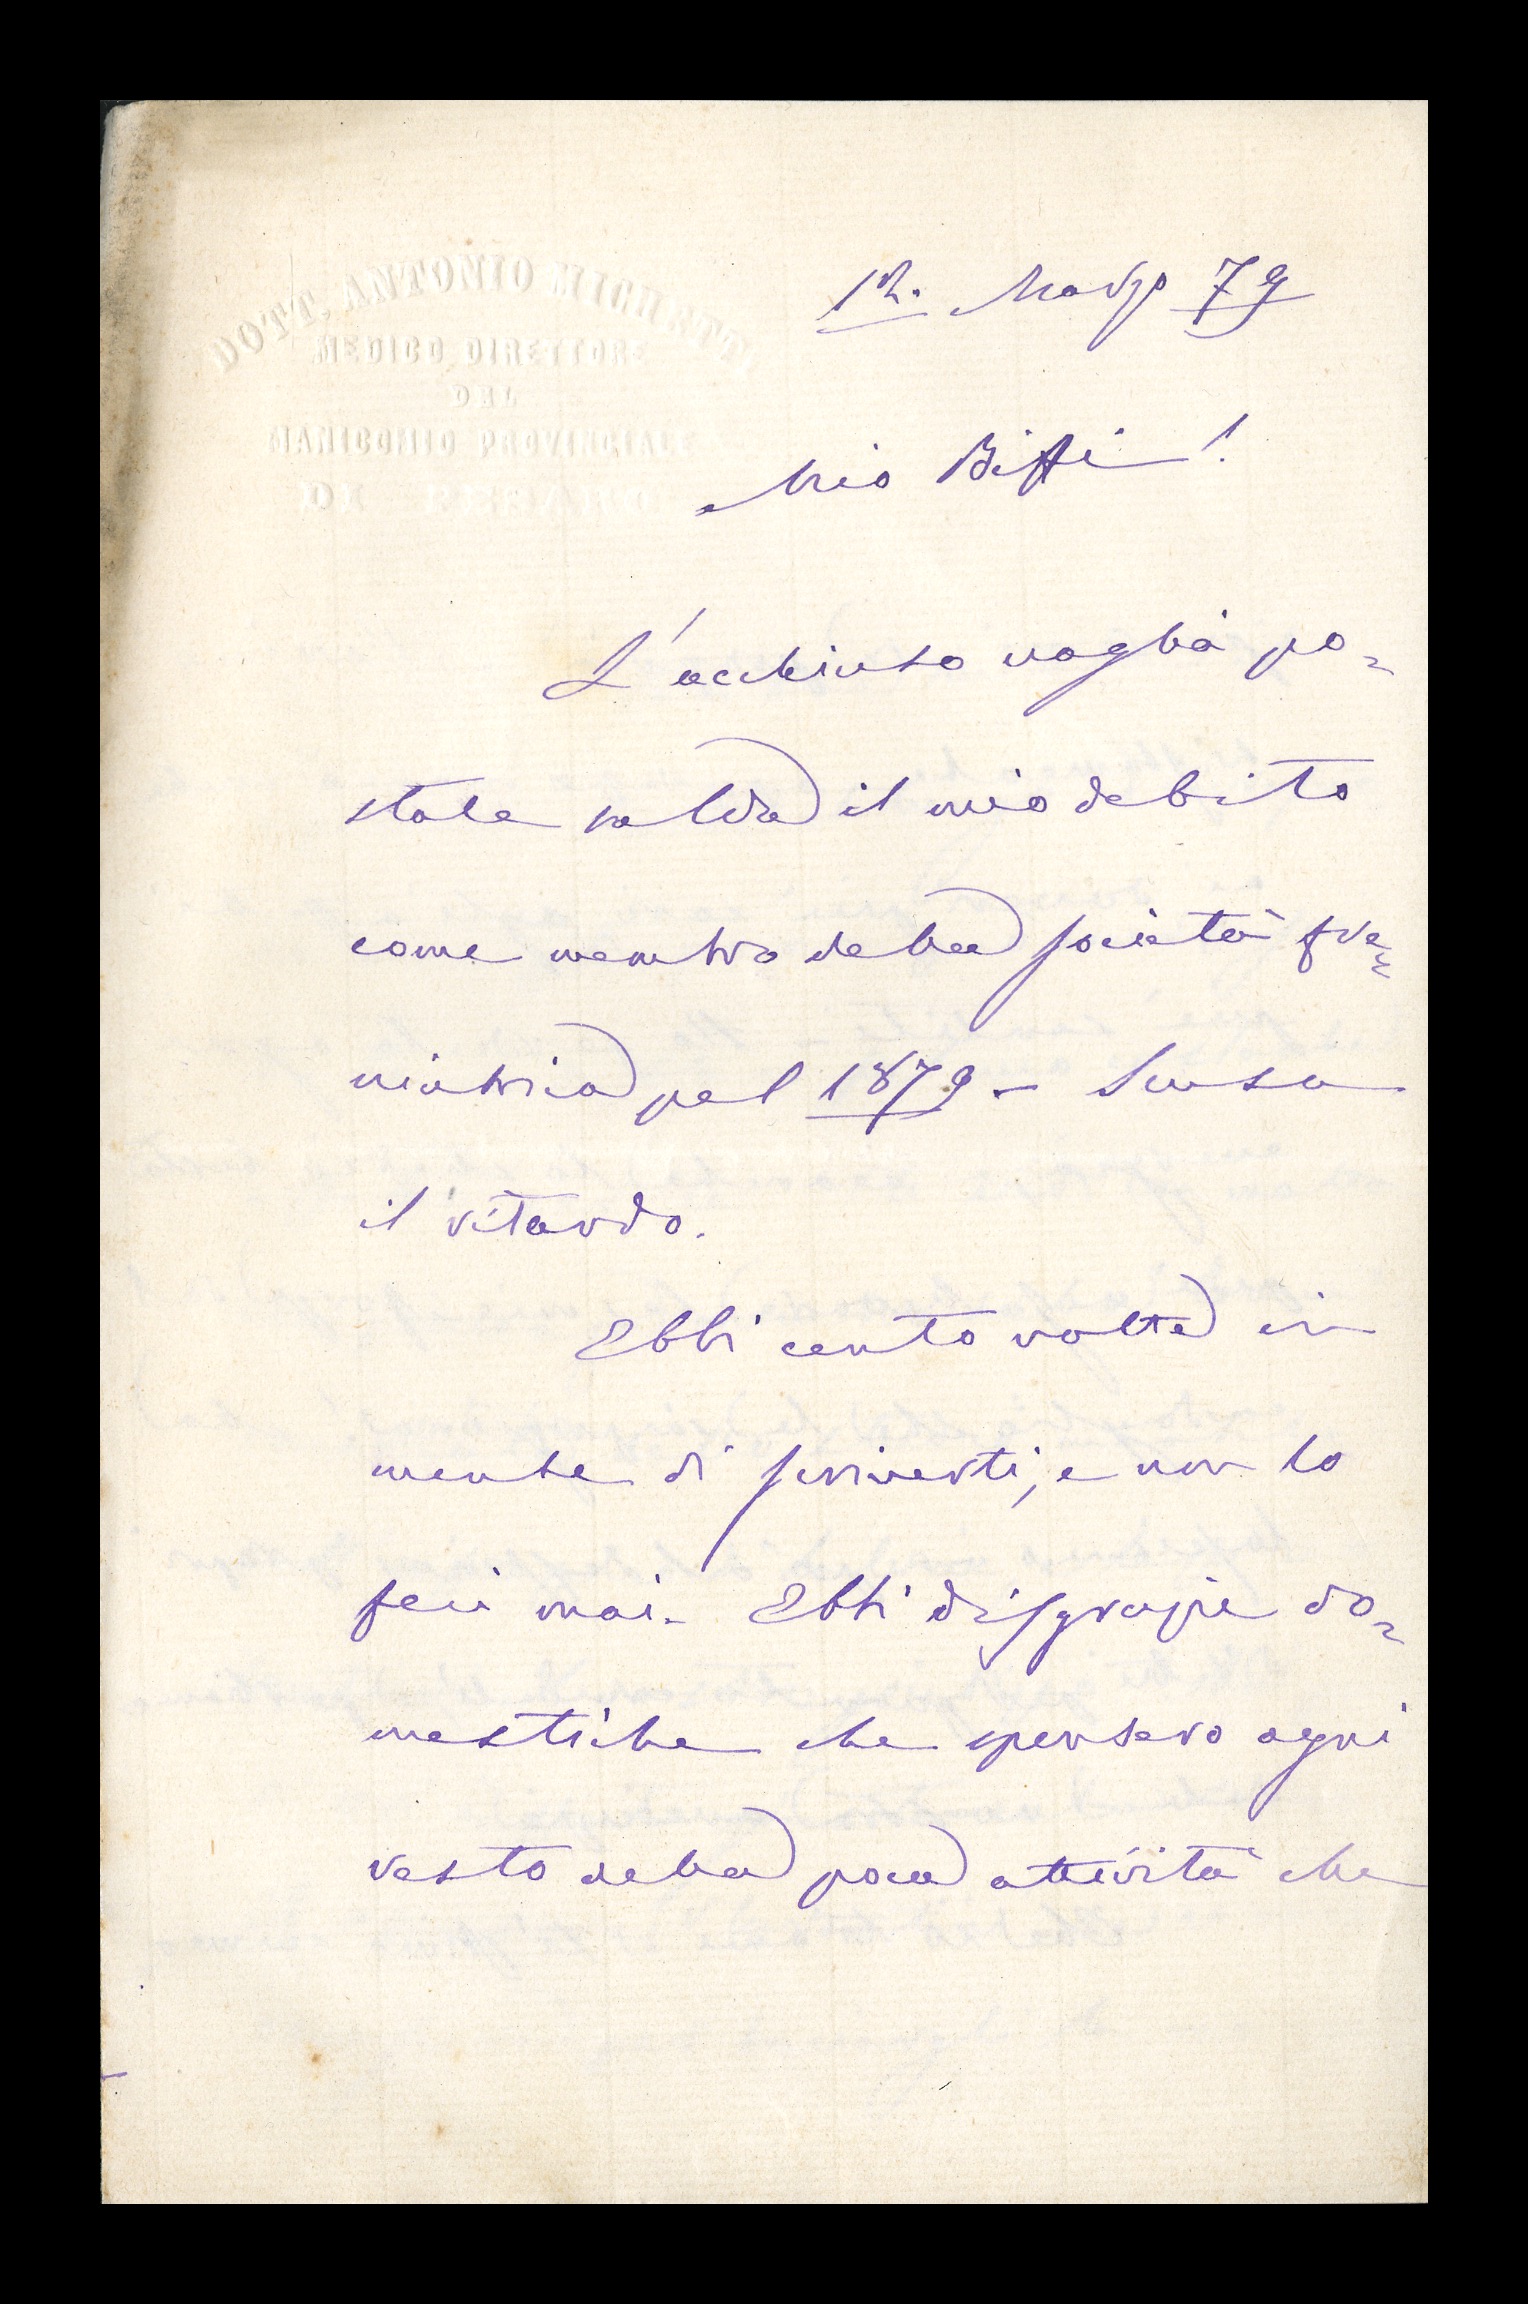 DOTT. ANTONIO MICHETTI
MEDICO DIRETTORE
DEL
MANICOMIO PROVINCIALE
DI PESARO
Marzo 79
Mio Biffi!
L'acchiuso vaglia po-
stale salda il mio debito
come membro della società fre-
niatria pel 1879 - Scusa
il ritardo.
Ebbi cento volte in
mente di scriverti, e non lo
feci mai. Ebbi disgrazie do-
mestiche che spensero ogni
resto della poca attività che